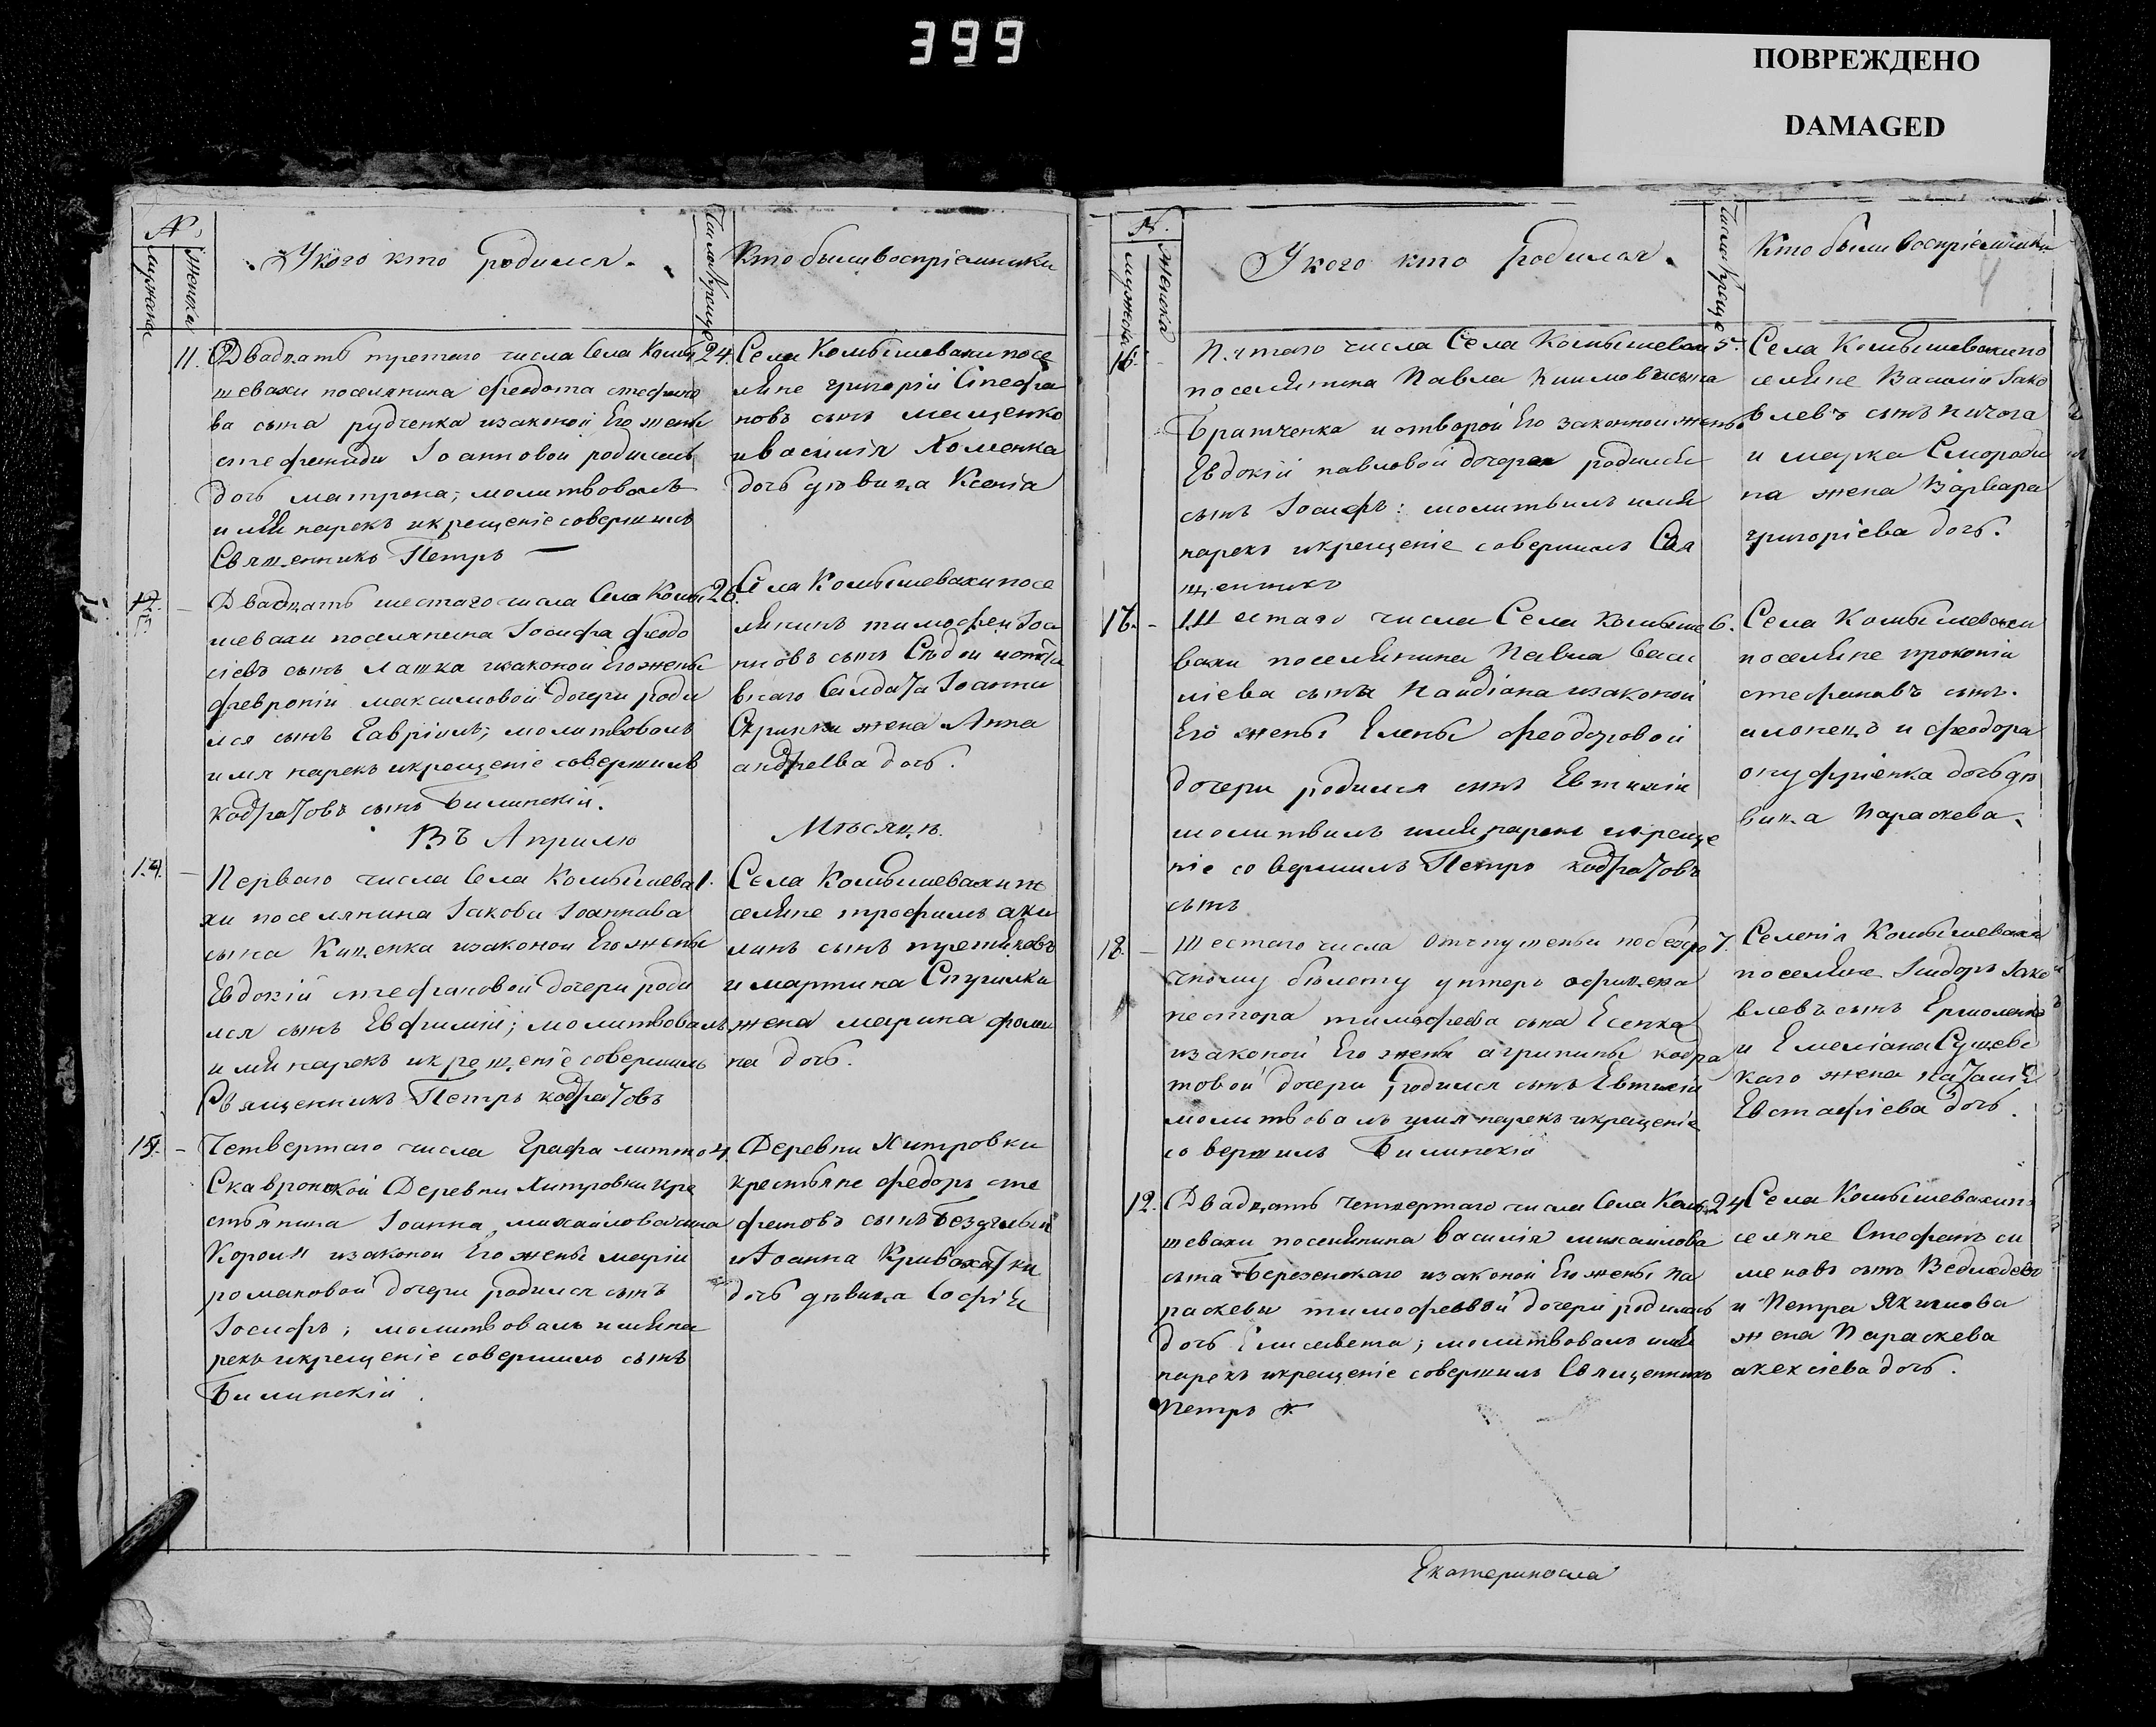 399
ПОВРЕЖДЕНО
DAMAGED
№
мужска
женска
Укого кто родился.
Кто были воспріемники
11. Двадцать третаго числа Села Комы 24.
шевахи поселянина Феодота стефано
ва сына рудченка изаконой Его жены
Іоанновой родилась
дочь матрона; молитвовалъ
имя нарекъ икрещеніе совершилъ
Священникъ Петръ —
Села Комышевахи посе
ляне григорій Стефа
новъ сынъ мащенко
и василія Хоменка
дочь дѣвица Ксенія
Двадцать шестаго числа Села Комы 26.
шевахи поселянина Іосифа феодо
сіевъ сынъ лашка изаконой Его жены
февроніи максимовой дочери роди
лся сынъ Гавріилъ; молитвовалъ
имя нарекъ икрещеніе совершилъ
кодратовъ сынъ Билинскій.
Села Комышевахи посе
лянинъ тимофеи Іоа
нновъ сынъ
Солдата Іоанна
жена Анна
андреева дочь.
Въ Априлѣ Мѣсяцѣ.
14. – Первого числа Села Комышева 1.
хи поселянина Іакова Іоаннова
сына Каценка изаконои Его жены
Евдокіи стефановой дочери роди
лся сынъ Евфимій; молитвовалъ
имя нарекъ икрещеніе совершилъ
Священникъ Петръ кодратовъ
Села Комышевахи по
селяне трофимъ аки
линъ сынъ
и мартина
жена марина фоми
на дочь.
15. – Четвертаго числа Графа литто 4.
Скавронской Деревни Хитровки кре
стьянина Іоанна михайлова сына
Короля изаконои Его жены маріи
романовой дочери родился сынъ
Іосифъ; молитвовалъ имя на
рекъ икрещеніе совершилъ сынъ
Билинскій.
Деревни Хитровки
крестьяне федоръ сте
фановъ сынъ
и Іоанна
дочь дѣвица Софія
№
мужска
женска
Укого кто родился.
Кто были воспріемники
4
16. Пятаго числа Села Комышевахи 5.
поселянина Павла сына
Братченка и отворой Его законнои жены
Евдокіи павловой дочери родился
сынъ Іосифъ: молитвилъ имя
нарекъ икрещеніе совершилъ Свя
щенникъ
Села Комышевахи по
селяне Василій Іако
влевъ сынъ пичога
и марка Смороди
на жена Варвара
григоріева дочь.
17. – Шестаго числа Села Комыше 6.
вахи поселянина Павла Васи
ліева сына изаконои
Его жены Елены феодоровой
дочери родился сынъ Евтихій
молитвилъ имя нарекъ икреще
ніе совершилъ Петръ кодратовъ
сынъ
Села Комышевахи
поселяне прокопій
стефановъ сынъ.
и феодора
онуфріенка дочь дѣ
вица Параскева.
18. – Шестаго числа отпущеный по безсро 7.
чному билету унтеръ офицера
нестора тимофеева сына Есенка
изаконой Его жены агрипины кодра
товой дочери родился сынъ Евтихій
молитвовалъ имя нарекъ икрещеніе
совершилъ Билинскій
Селенія Комышевахи
поселяне Ісидоръ Іако
влевъ сынъ Ермоленко
и Емеліана Сущевс
каго жена наталія
Евстафіева дочь.
12. Двадцать четвертаго числа Села Комы 24
шевахи поселянина василія михаилова
сына Березенскаго изаконой Его жены па
раскевы тимофеевой дочери родилась
дочь Елисавета; молитвовалъ имя
нарекъ икрещеніе совершилъ Священникъ
Петръ к.
Села Комышевахи по
селяне Стефанъ си
меновъ сынъ
и Петра Якимова
жена Параскева
алексіева дочь.
Екатериносла